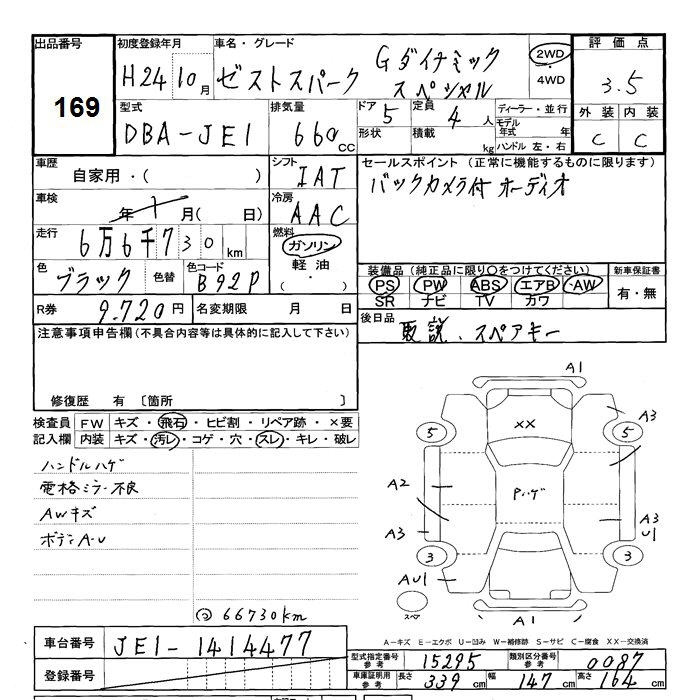 出品番号 初度登録年月 車名・グレード 評価点
169 H24 10月 ゼストスパーク Gダイナミック スペシャル 2WD ・ 4WD 3.5
型式 排気量 ドア 5 定員 4人 ディーラー・並行 外装 内装
DBA-JE1 660cc 形状 積載 kg モデル年式 年 C C
ハンドル 左・右
車歴 自家用・( ) シフト IAT セールスポイント (正常に機能するものに限ります)
車検 年 月( 日) 冷房 AAC バックカメラ付 オーディオ
走行 6万6千730km 燃料 ガソリン 軽油 ( ・ )
色 ブラック 色替 色コード B92P 装備品(純正品に限り○をつけてください) 新車保証書
PS PW ABS エアB AW 有・無
SR ナビ TV カワ
R券 9.720円 名変期限 月 日 後日品 取説、スペアキー
注意事項申告欄(不具合内容等は具体的に記入して下さい)
修復歴 有〔箇所 〕
検査員 FW キズ・飛石・ヒビ割・リペア跡・×要
記入欄 内装 キズ・汚レ・コゲ・穴・スレ・キレ・破レ
ハンドルハゲ
電格ミラー不良
AWキズ
ボディA・U
@66730km
A1
XX A3
5 5
A2 Pハゲ
A3 A3
U1
3 3
AU1
スペア
A1
A-キズ E-エクボ U-凹み W-補修跡 S-サビ C-腐食 XX-交換済
車台番号 JE1-1414477 型式指定番号 参考 15295 類別区分番号 参考 0087
登録番号 車庫証明用 参考 長さ 339cm 幅 147cm 高さ 164cm